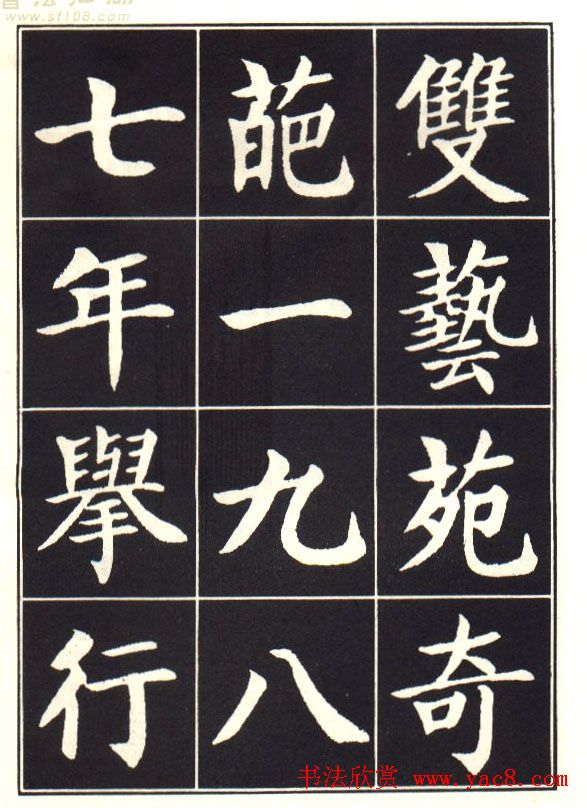 雙藝苑奇
葩一九八
七年舉行
书法欣赏 www.yac8.com
www.sf108.com